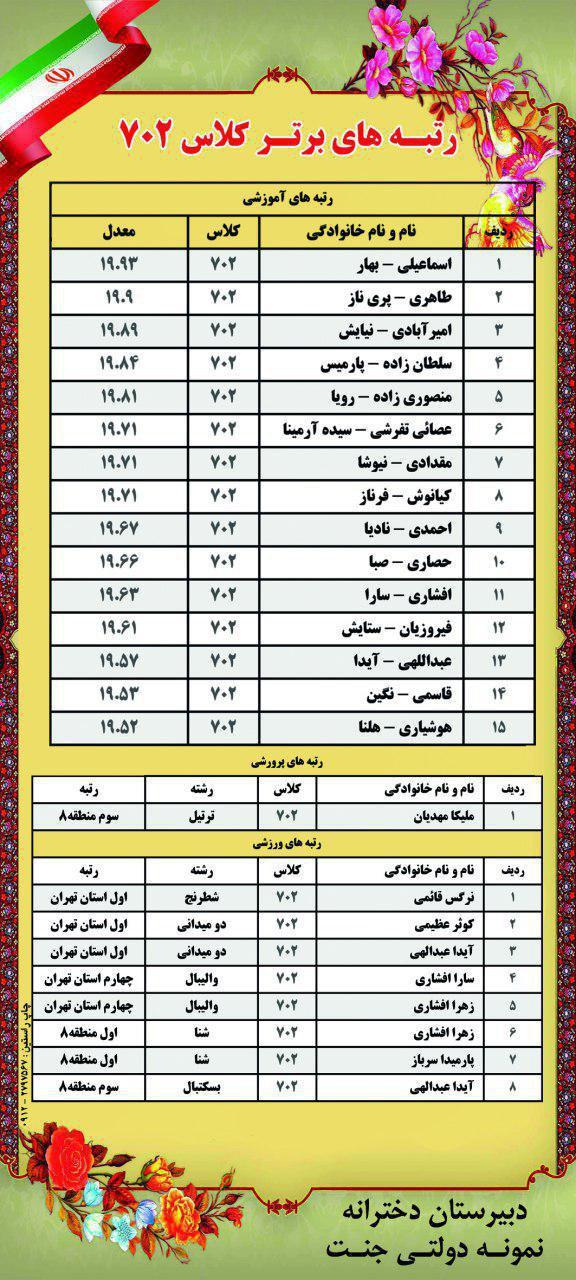 رتبه های برتر کلاس ۷۰۲
رتبه های آموزشی
ردیف نام و نام خانوادگی کلاس معدل
۱ اسماعیلی - بهار ۷۰۲ ۱۹.۹۳
۲ طاهری - پری ناز ۷۰۲ ۱۹.۹
۳ امیرآبادی - نیایش ۷۰۲ ۱۹.۸۹
۴ سلطان زاده - پارمیس ۷۰۲ ۱۹.۸۴
۵ منصوری زاده - رویا ۷۰۲ ۱۹.۸۱
۶ عصائی تفرشی - سیده آرمینا ۷۰۲ ۱۹.۷۱
۷ مقدادی - نیوشا ۷۰۲ ۱۹.۷۱
۸ کیانوش - فرناز ۷۰۲ ۱۹.۷۱
۹ احمدی - نادیا ۷۰۲ ۱۹.۶۷
۱۰ حصاری - صبا ۷۰۲ ۱۹.۶۶
۱۱ افشاری - سارا ۷۰۲ ۱۹.۶۳
۱۲ فیروزیان - ستایش ۷۰۲ ۱۹.۶۱
۱۳ عبداللهی - آیدا ۷۰۲ ۱۹.۵۷
۱۴ قاسمی - نگین ۷۰۲ ۱۹.۵۳
۱۵ هوشیاری - هلنا ۷۰۲ ۱۹.۵۲
رتبه های پرورشی
ردیف نام و نام خانوادگی کلاس رشته رتبه
۱ ملیکا مهدیان ۷۰۲ ترتیل سوم منطقه۸
رتبه های ورزشی
ردیف نام و نام خانوادگی کلاس رشته رتبه
۱ نرگس قائمی ۷۰۲ شطرنج اول استان تهران
۲ کوثر عظیمی ۷۰۲ دو میدانی اول استان تهران
۳ آیدا عبدالهی ۷۰۲ دو میدانی اول استان تهران
۴ سارا افشاری ۷۰۲ والیبال چهارم استان تهران
۵ زهرا افشاری ۷۰۲ والیبال چهارم استان تهران
۶ زهرا افشاری ۷۰۲ شنا اول منطقه۸
۷ پارمیدا سرباز ۷۰۲ شنا اول منطقه۸
۸ آیدا عبدالهی ۷۰۲ بسکتبال سوم منطقه۸
دبیرستان دخترانه
نمونه دولتی جنت